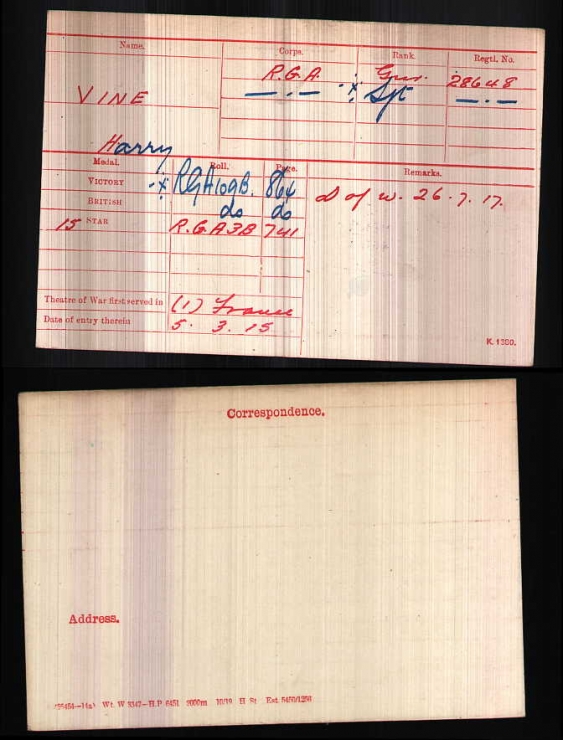 Name. Corps. Rank. Regtl. No.
R.G.A. Gnr. 28648
VINE — . — ·x· Sjt — . —
Harry
Medal. Roll. Page. Remarks.
VICTORY ·x· RGA109B. 864 D of w. 26.7.17.
BRITISH do do
15 STAR R.G.A3B 741
Theatre of War first served in (1) France
Date of entry therein 5. 3. 15
K. 1380.
Correspondence.
Address.
Wt. W 3347—H.P 6451 2000m 10/19 H St